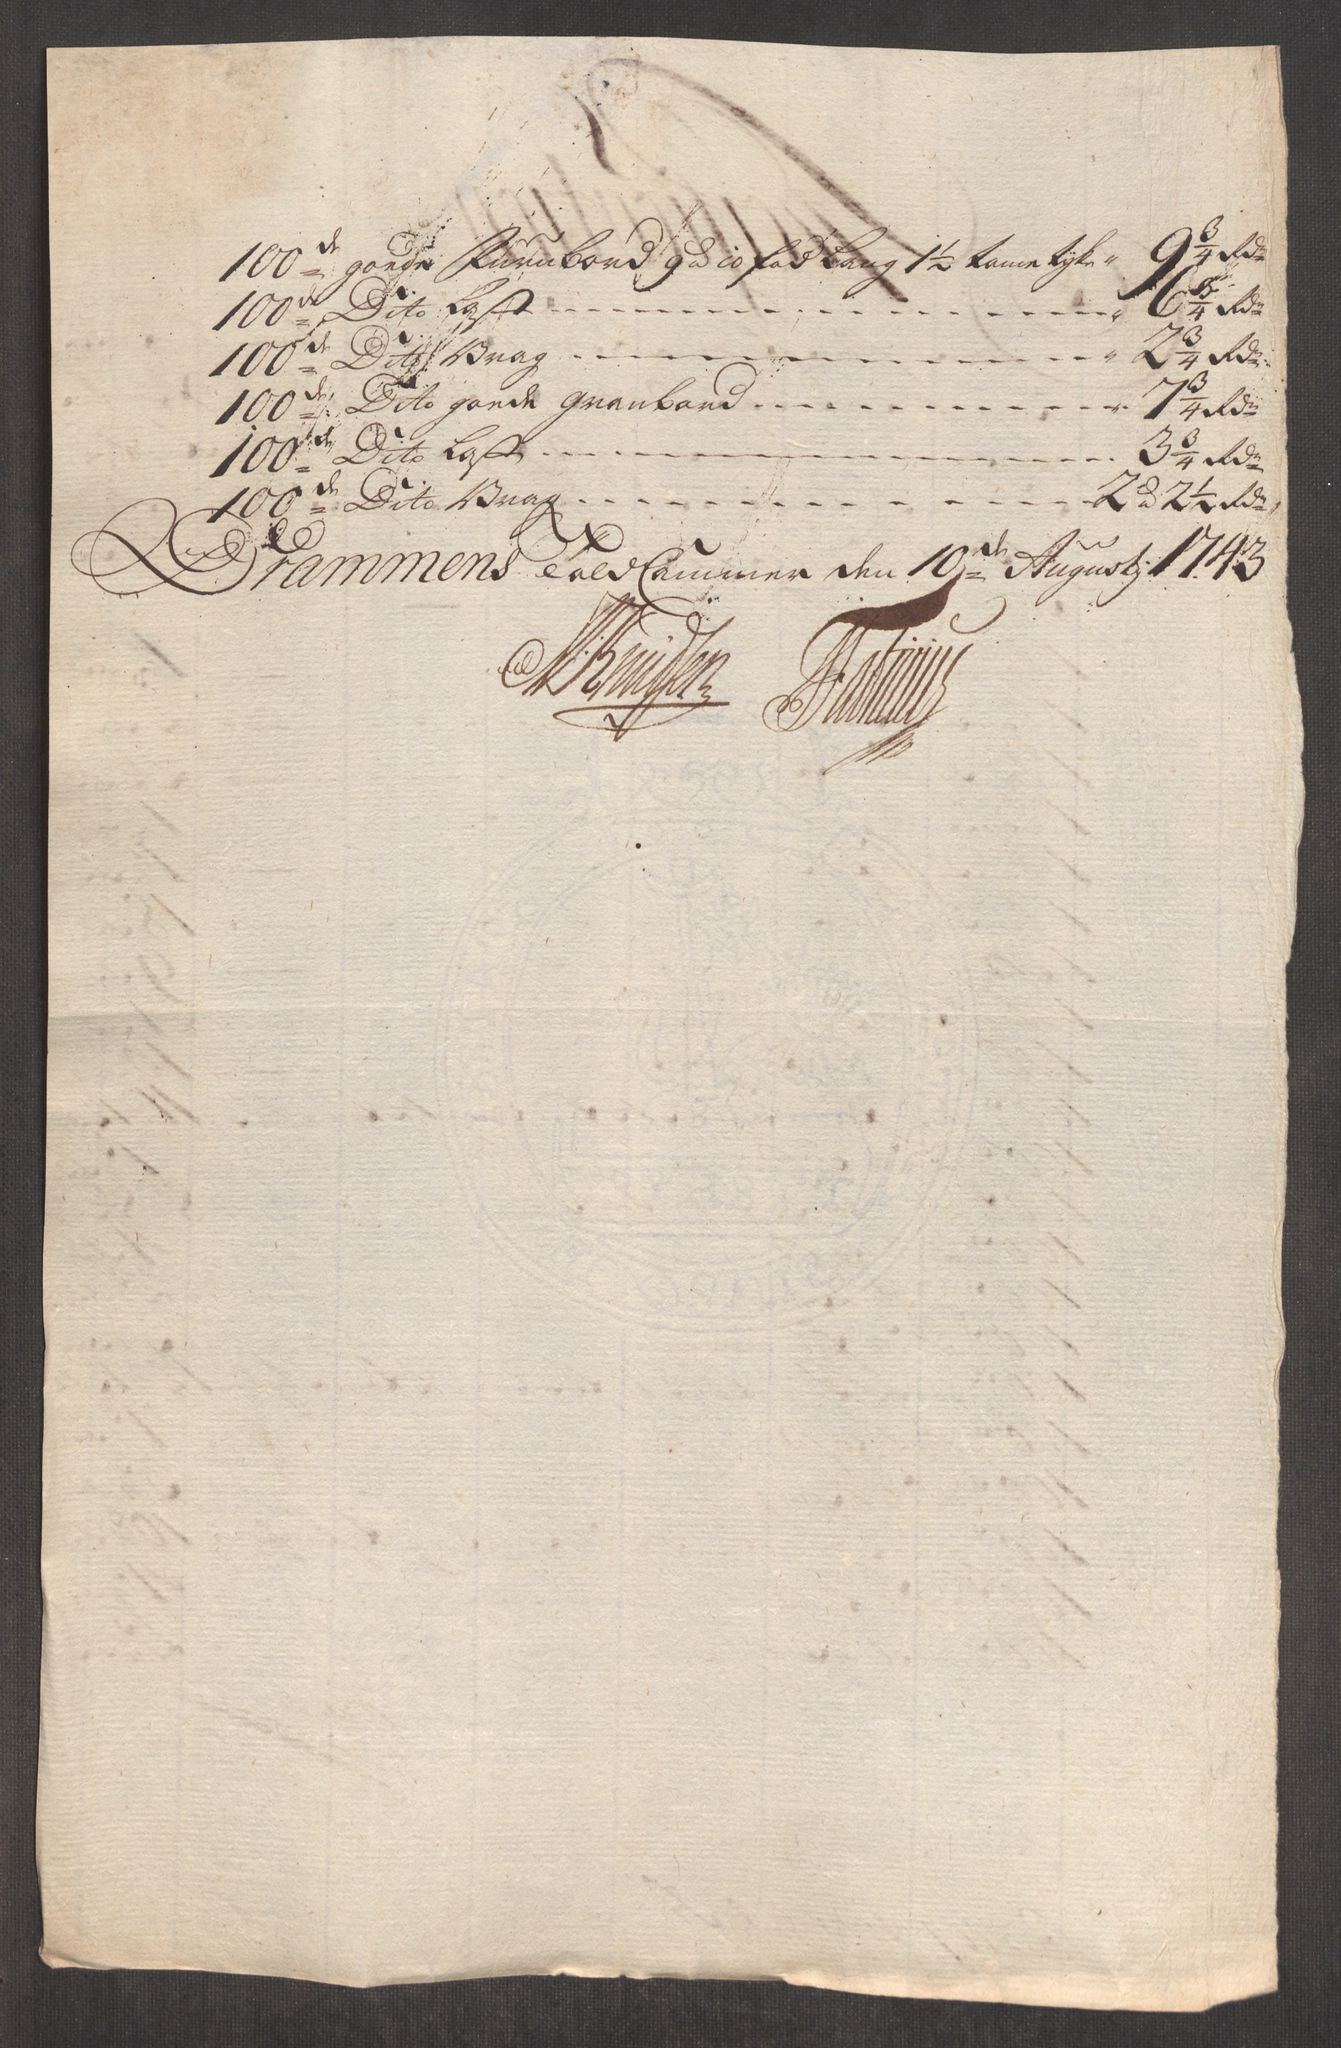 100de goede Furubord 9 a 10 fod lang 1½ tome tyke 9¾ Rdr
100de Dito Lest 6¾ Rdr
100de Dito Vrag 2¾ Rdr
100de Dito goede granbord 7¾ Rdr
100de Dito Lest 3¾ Rdr
100de Dito Vrag 2 a 2½ Rdr
Drammens Told Cammer den 10de Augustj 1743
Knudsen